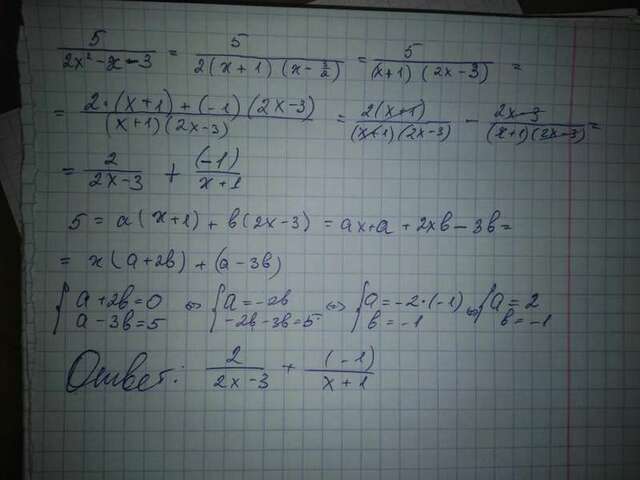 5/(2x²-x-3) = 5/(2(x+1)(x-3/2)) = 5/((x+1)(2x-3)) =
= (2·(x+1)+(-1)(2x-3))/((x+1)(2x-3)) = 2(x+1)/((x+1)(2x-3)) - (2x-3)/((x+1)(2x-3)) =
= 2/(2x-3) + (-1)/(x+1)
5 = a(x+1) + b(2x-3) = ax+a+2xb-3b=
= x(a+2b)+(a-3b)
{a+2b=0 ⇔ {a=-2b ⇔ {a=-2·(-1) ⇔ {a=2
a-3b=5 -2b-3b=5 b=-1 b=-1
Ответ: 2/(2x-3) + (-1)/(x+1)